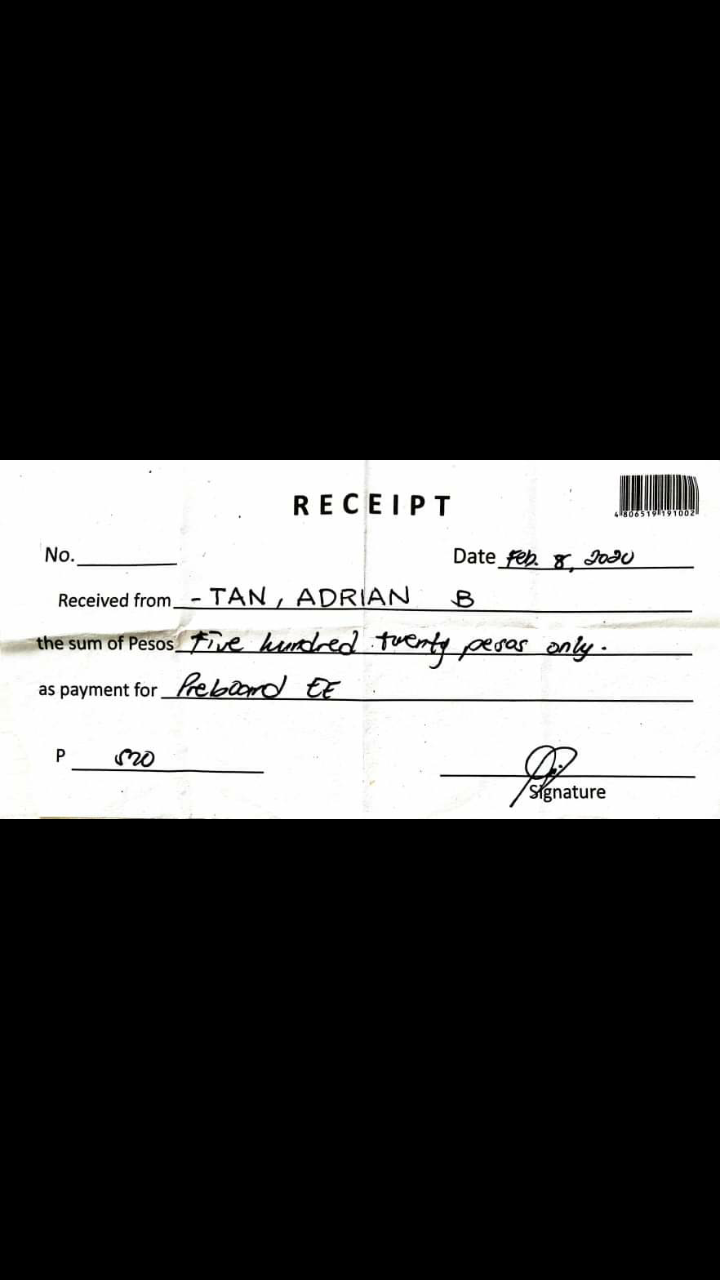 RECEIPT
4806519191002
No.
Date Feb. 8, 2020
Received from - TAN, ADRIAN B
the sum of Pesos Five hundred twenty pesos only.
as payment for Preboard EE
P 520
Signature